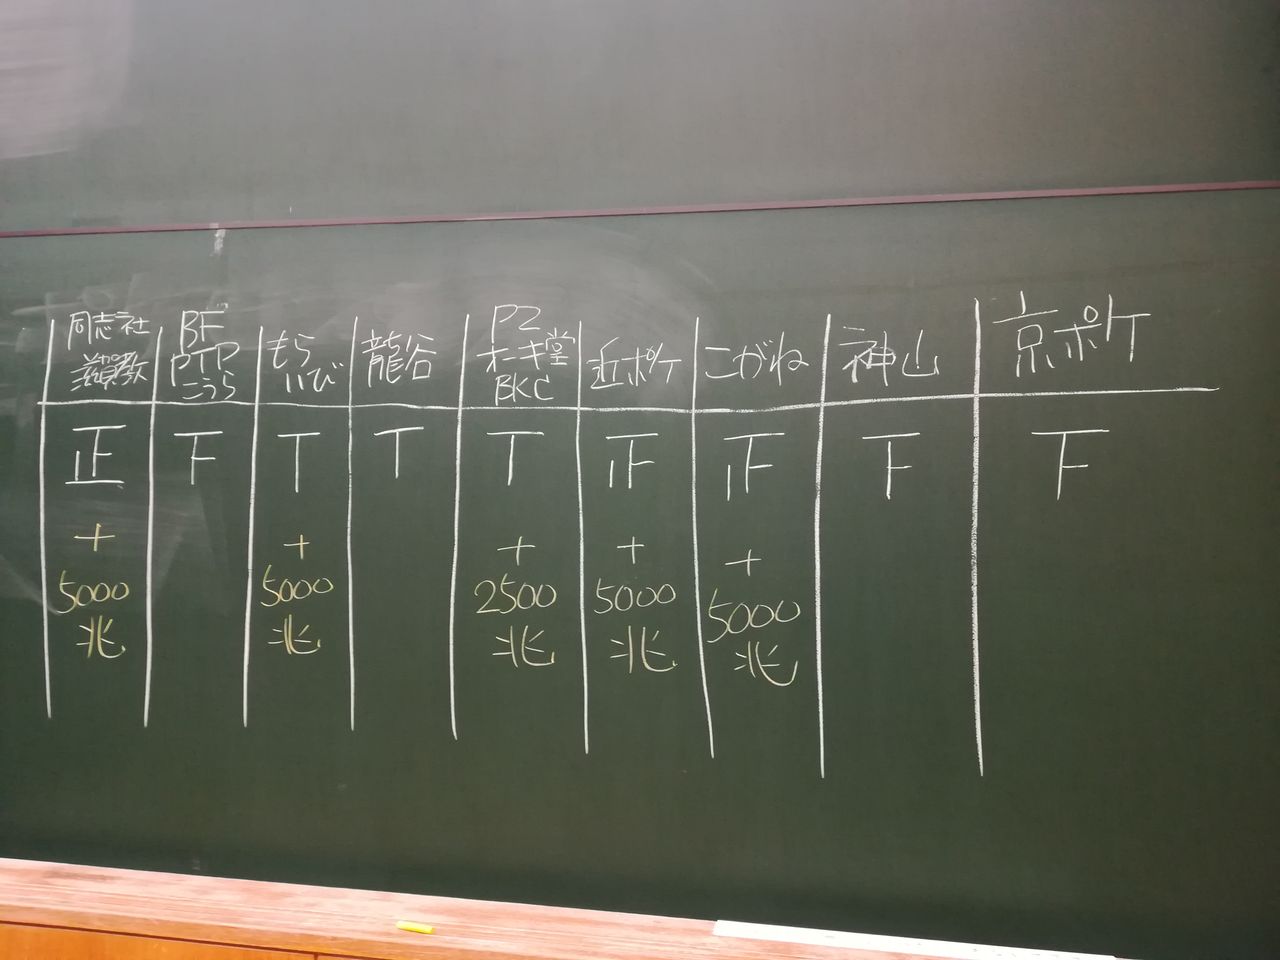 同志社
滋賀教
BF
PTP
こうら
もら
いび
龍谷
P2
オーキ堂
BKC
近ポケ
こがね
神山
京ポケ
正
下
T
T
T
正
正
下
下
+
5000
兆
+
5000
兆
+
2500
兆
+
5000
兆
+
5000
兆